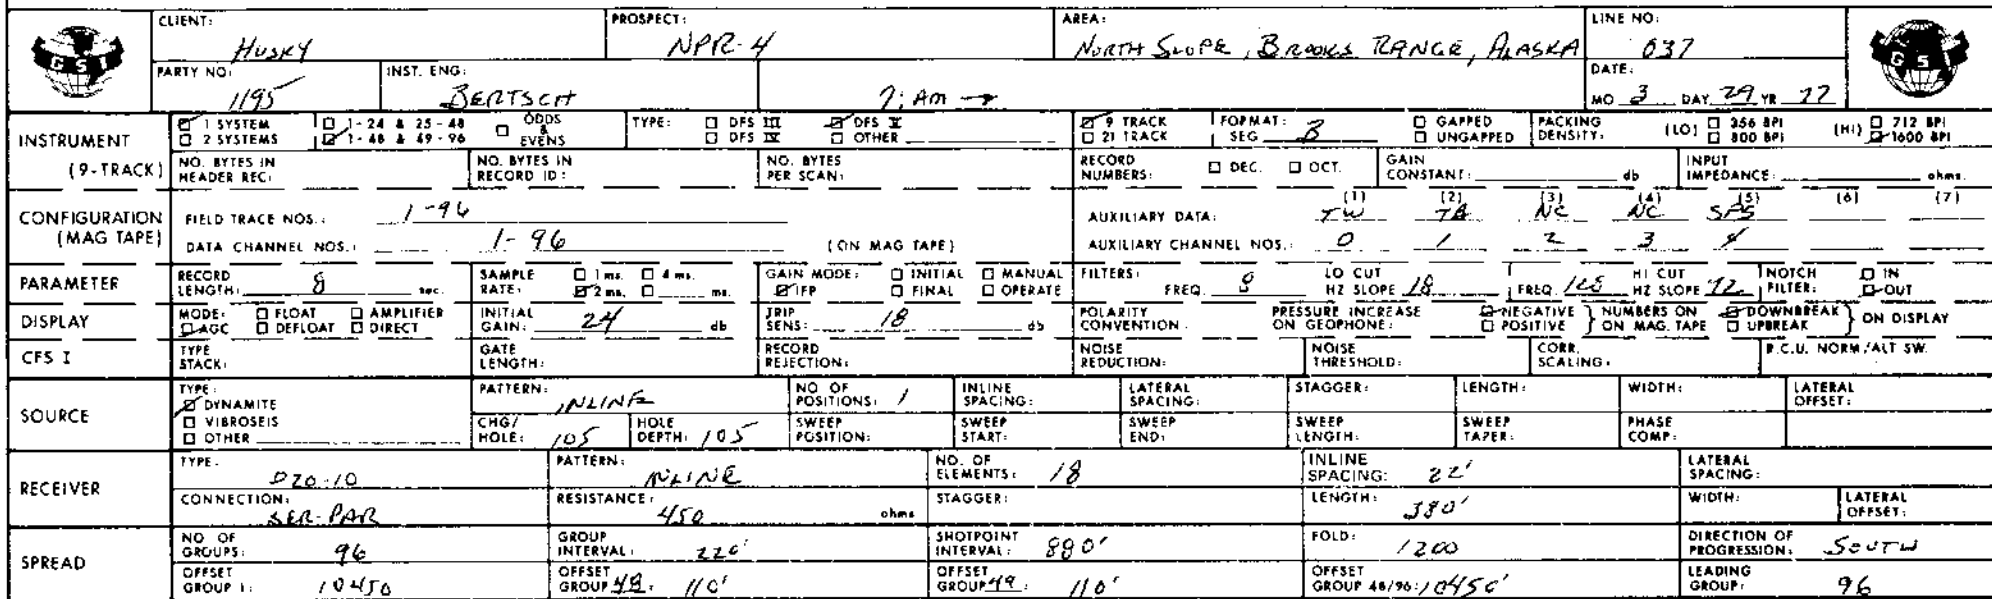 CLIENT: HUSKY PROSPECT: NPR-4 AREA: NORTH SLOPE, BROOKS RANGE, ALASKA LINE NO: 037
GSI GSI
PARTY NO: 1195 INST. ENG: BERTSCH ?: AM → DATE: MO 3 DAY 29 YR 77
INSTRUMENT (9-TRACK) ☑ 1 SYSTEM ☐ 1-24 & 25-48 ☐ ODDS & EVENS TYPE: ☐ DFS III ☑ DFS V ☑ 9 TRACK FORMAT: SEG B ☐ GAPPED PACKING DENSITY: (LO) ☐ 356 BPI (HI) ☐ 712 BPI
☐ 2 SYSTEMS ☑ 1-48 & 49-96 ☐ DFS IV ☐ OTHER ☐ 21 TRACK ☐ UNGAPPED ☐ 800 BPI ☑ 1600 BPI
NO. BYTES IN HEADER REC: NO. BYTES IN RECORD ID: NO. BYTES PER SCAN: RECORD NUMBERS: ☐ DEC. ☐ OCT. GAIN CONSTANT: db INPUT IMPEDANCE: ohms.
CONFIGURATION (MAG TAPE) FIELD TRACE NOS.: 1-96 AUXILIARY DATA: (1) TW (2) TB (3) NC (4) NC (5) SPS (6) (7)
DATA CHANNEL NOS.: 1-96 (ON MAG TAPE) AUXILIARY CHANNEL NOS.: 0 1 2 3 4
PARAMETER RECORD LENGTH: 8 sec. SAMPLE RATE: ☐ 1 ms. ☐ 4 ms. ☑ 2 ms. ☐ ms. GAIN MODE: ☐ INITIAL ☐ MANUAL ☑ IFP ☐ FINAL ☐ OPERATE FILTERS: FREQ. 8 LO CUT HZ SLOPE 18 FREQ. 128 HI CUT HZ SLOPE 72 NOTCH FILTER: ☐ IN ☑ OUT
DISPLAY MODE: ☐ FLOAT ☐ AMPLIFIER ☑ AGC ☐ DEFLOAT ☐ DIRECT INITIAL GAIN: 24 db TRIP SENS: 18 db POLARITY CONVENTION: PRESSURE INCREASE ON GEOPHONE: ☑ NEGATIVE ☐ POSITIVE } NUMBERS ON MAG. TAPE ☑ DOWNBREAK ☐ UPBREAK } ON DISPLAY
CFS I TYPE STACK: GATE LENGTH: RECORD REJECTION: NOISE REDUCTION: NOISE THRESHOLD: CORR. SCALING: R.C.U. NORM/ALT SW.
SOURCE TYPE: ☑ DYNAMITE ☐ VIBROSEIS ☐ OTHER PATTERN: INLINE NO OF POSITIONS: 1 INLINE SPACING: LATERAL SPACING: STAGGER: LENGTH: WIDTH: LATERAL OFFSET:
CHG/HOLE: 105 HOLE DEPTH: 105 SWEEP POSITION: SWEEP START: SWEEP END: SWEEP LENGTH: SWEEP TAPER: PHASE COMP:
RECEIVER TYPE: DZO-10 PATTERN: INLINE NO. OF ELEMENTS: 18 INLINE SPACING: 22' LATERAL SPACING:
CONNECTION: SER-PAR RESISTANCE: 450 ohms STAGGER: LENGTH: 380' WIDTH: LATERAL OFFSET:
SPREAD NO OF GROUPS: 96 GROUP INTERVAL: 220' SHOTPOINT INTERVAL: 880' FOLD: 1200 DIRECTION OF PROGRESSION: SOUTH
OFFSET GROUP 1: 10450 OFFSET GROUP 48: 110' OFFSET GROUP 49: 110' OFFSET GROUP 48/96: 10450' LEADING GROUP: 96